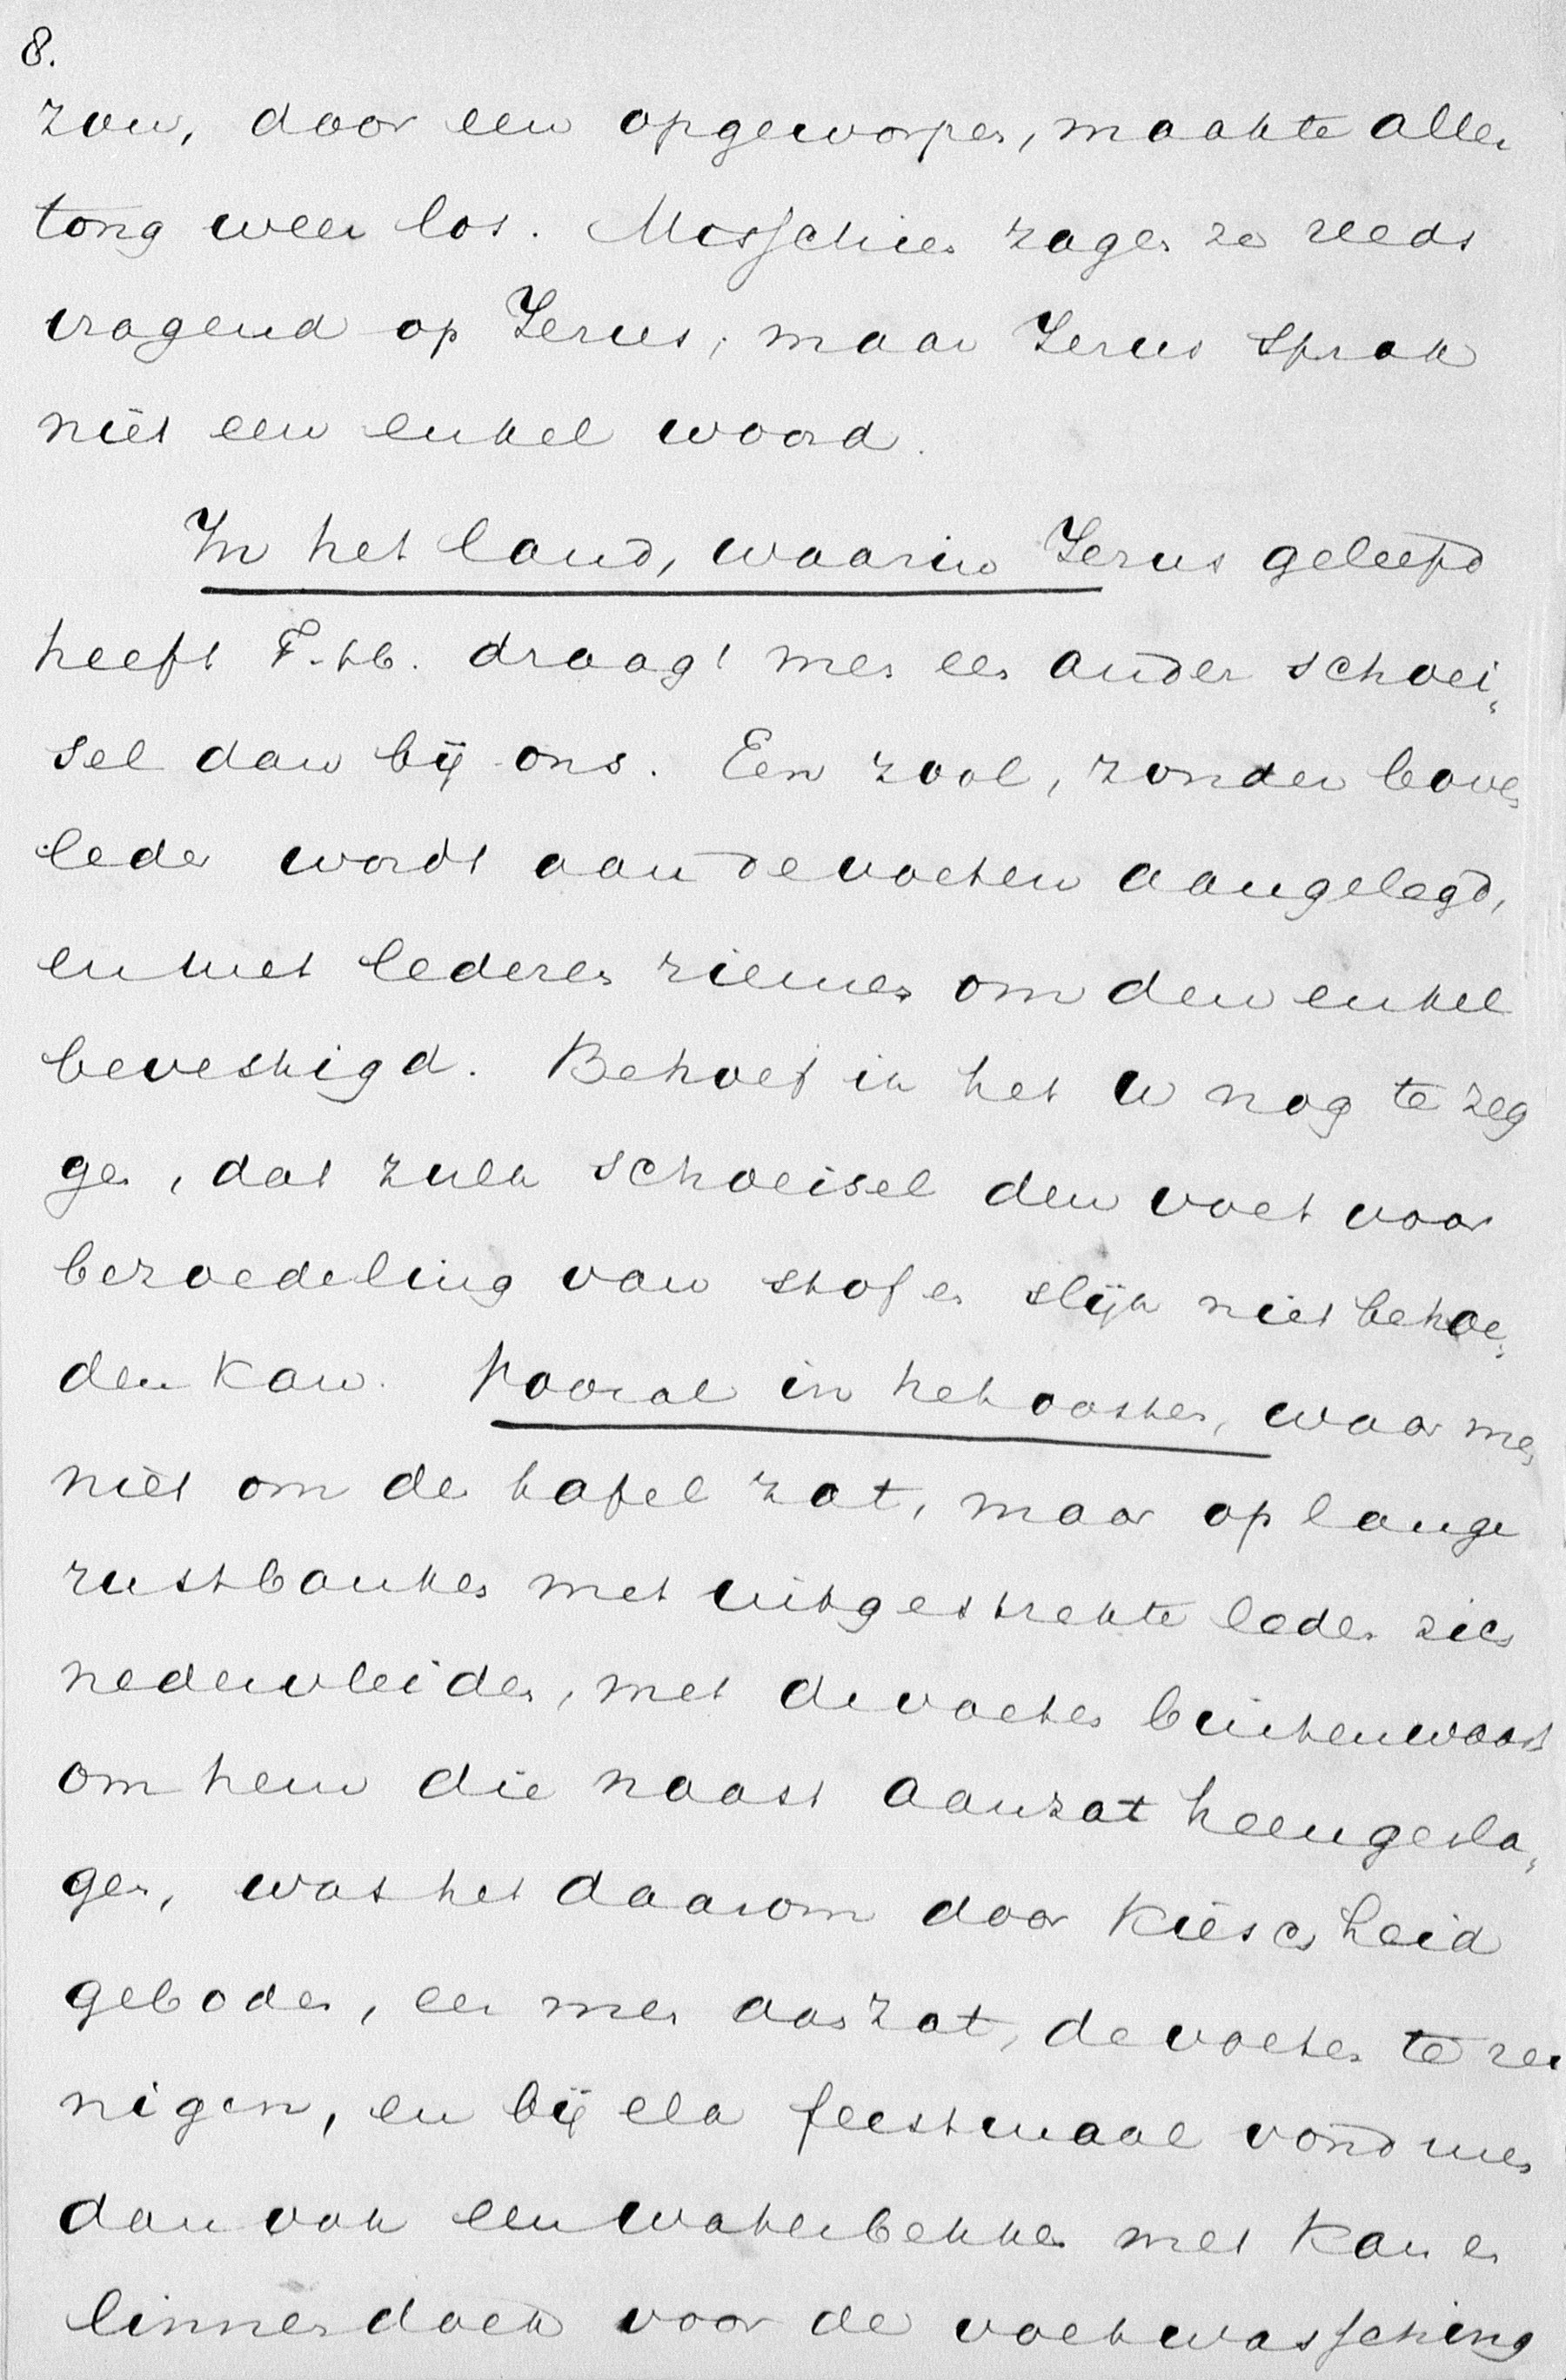 8.
zou, door een opgeworpen, maakte aller
tong weer los. Misschien zagen ze reeds
vragend op Jezus, maar Jezus sprak
niet een enkel woord.
In het land, waarin Jezus geleefd
heeft T.hb. draagt men een ander schoei„
sel dan bij ons. Een zool, zonder boven
leder wordt aan de voeten aangelegd,
en met lederen riemen om den enkel
bevestigd. Behoef ik het u nog te zeg
gen, dat zulk schoeisel den voet voor
bezoedeling van stof en slijk niet behoe„
den kan. Vooral in het oosten, waar men
niet om de tafel zat, maar op lange
rustbanken met uitgestrekte leden zich
nedervleiden, met de voeten buitenwaarts
om hem die naast aanzat heengesla„
gen, was het daarom door kieschheid
geboden, eer men aanzat, de voeten te rei
nigen, en bij elk feestmaal vond men
dan ook een waterbekken met kan en
linnendoek voor de voetwassching